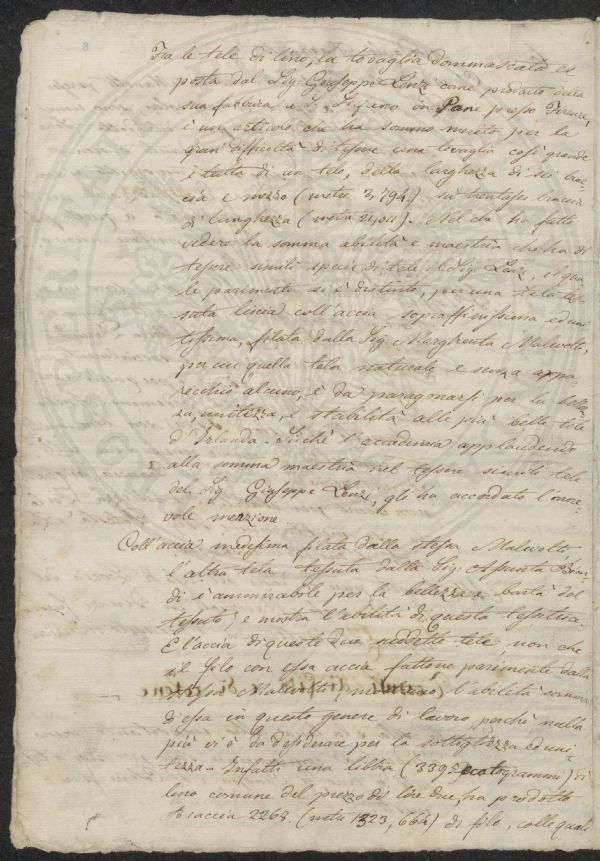 Fra le tele di lino, la tovaglia dommascata es
posta dal Sig. Giuseppe Lenzi come provata della
sua fabbrica a S. Stefano in Pane presso Firenze,
è un articolo che ha sommo merito per la
gran difficoltà di tessere una tovaglia così grande
e tutta di un telo, della larghezza di sei brac
cia e mezzo (metri 3,794) su trentasei braccia
di lunghezza (metri 21,011). Nel che ha fatto
vedere la somma abilità e maestria che ha di
tessere simili specie di tele il Sig. Lenzi, il qua
le parimente si è distinto, per una tela tes
suta liscia coll'accia sopraffinissima ed uni
tissima, filata dalla Sig. Margherita Malvolti,
per cui quella tela naturale e senza appa
recchio alcuno, è da paragonarsi per la bellez
za, unitezza, e stabilità alle più belle tele
d'Irlanda. Sicchè l'accademia applaudendo
alla somma maestria nel tessere simili tele
del Sig. Giuseppe Lenzi, gli ha accordato l'onore
vole menzione
Coll'accia medesima filata dalla stessa Malvolti
l'altra tela tessuta dalla Sig. Assunta
di è ammirabile per la bellezza e bontà del
tessuto e mostra l'abilità di questa tessitrice.
E l'accia di queste due suddette tele, non che
il filo con essa accia fattone parimente dalla
stessa Malvolti, mostrano l'abilità somma
d'essa in questo genere di lavoro perchè nulla
più vi è da desiderare per la sottigliezza ed uni
tezza. Infatti una libbra (3395 ecatogrammi) di
lino comune del prezzo di lire due, ha prodotto
braccia 2268. (metri 1323,664) di filo, colle quali